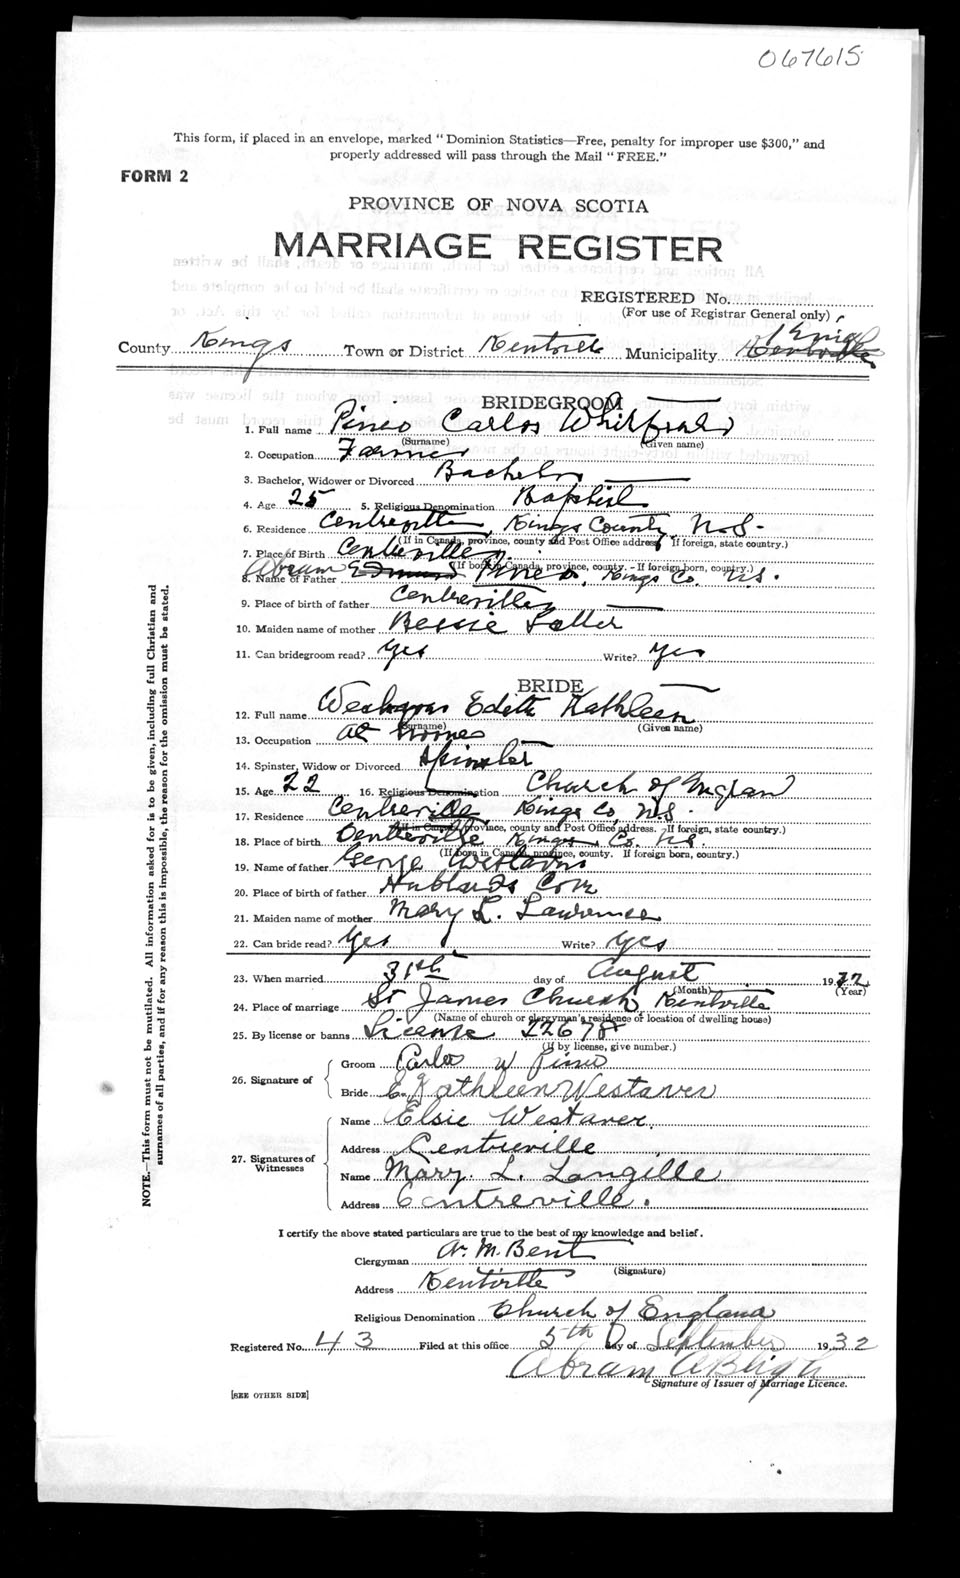 067615
This form, if placed in an envelope, marked "Dominion Statistics—Free, penalty for improper use $300," and
properly addressed will pass through the Mail "FREE."
FORM 2
PROVINCE OF NOVA SCOTIA
MARRIAGE REGISTER
REGISTERED No.
(For use of Registrar General only)
County Kings Town or District Kentville Municipality Kings Kentville
BRIDEGROOM
1. Full name Pineo Carlos
(Surname) (Given name)
2. Occupation Farmer
3. Bachelor, Widower or Divorced Bachelor
4. Age 25 5. Religious Denomination Baptist
6. Residence Centreville, Kings County, N.S.
(If in Canada, province, county and Post Office address. If foreign, state country.)
7. Place of Birth Centreville, Kings Co. N.S.
(If born in Canada, province, county. - If foreign born, country.)
8. Name of Father Abram Edmund Pineo
9. Place of birth of father Centreville
10. Maiden name of mother Bessie
11. Can bridegroom read? Yes Write? Yes
BRIDE
12. Full name Westaver Edith Kathleen
(Surname) (Given name)
13. Occupation At home
14. Spinster, Widow or Divorced Spinster
15. Age 22 16. Religious Denomination Church of England
17. Residence Centreville Kings Co, N.S.
(If in Canada, province, county and Post Office address. -If foreign, state country.)
18. Place of birth Centreville Kings Co. N.S.
(If born in Canada, province, county. If foreign born, country.)
19. Name of father George Westaver
20. Place of birth of father Hubbards Cove
21. Maiden name of mother Mary L. Lawrence
22. Can bride read? Yes Write? Yes
23. When married 31st day of August 1932
(Month) (Year)
24. Place of marriage St James Church, Kentville
(Name of church or clergyman's residence of location of dwelling house)
25. By license or banns License 22678
(If by license, give number.)
26. Signature of
Groom Carlos W Pineo
Bride E. Kathleen Westaver
27. Signatures of
Witnesses
Name Elsie Westaver.
Address Centreville
Name Mary. L. Langille
Address Centreville.
I certify the above stated particulars are true to the best of my knowledge and belief.
Clergyman A. M. Bent
(Signature)
Address Kentville
Religious Denomination Church of England
Registered No. 43 Filed at this office 5th day of September 1932
Abram A Bligh
Signature of Issuer of Marriage Licence.
[SEE OTHER SIDE]
NOTE.—This form must not be mutilated. All information asked for is to be given, including full Christian and
surnames of all parties, and if for any reason this is impossible, the reason for the omission must be stated.